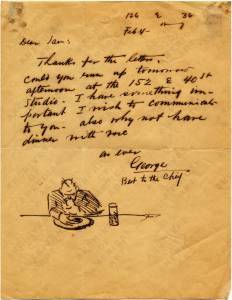 126 E 36
Feb 4
Dear Sam:
Thanks for the letter.
Could you run up tomorrow
afternoon at the 152 E 40 St
Studio. I have something im-
portant I wish to communicate
to you - also why not have
dinner with me
as ever
George
Best to the Chef